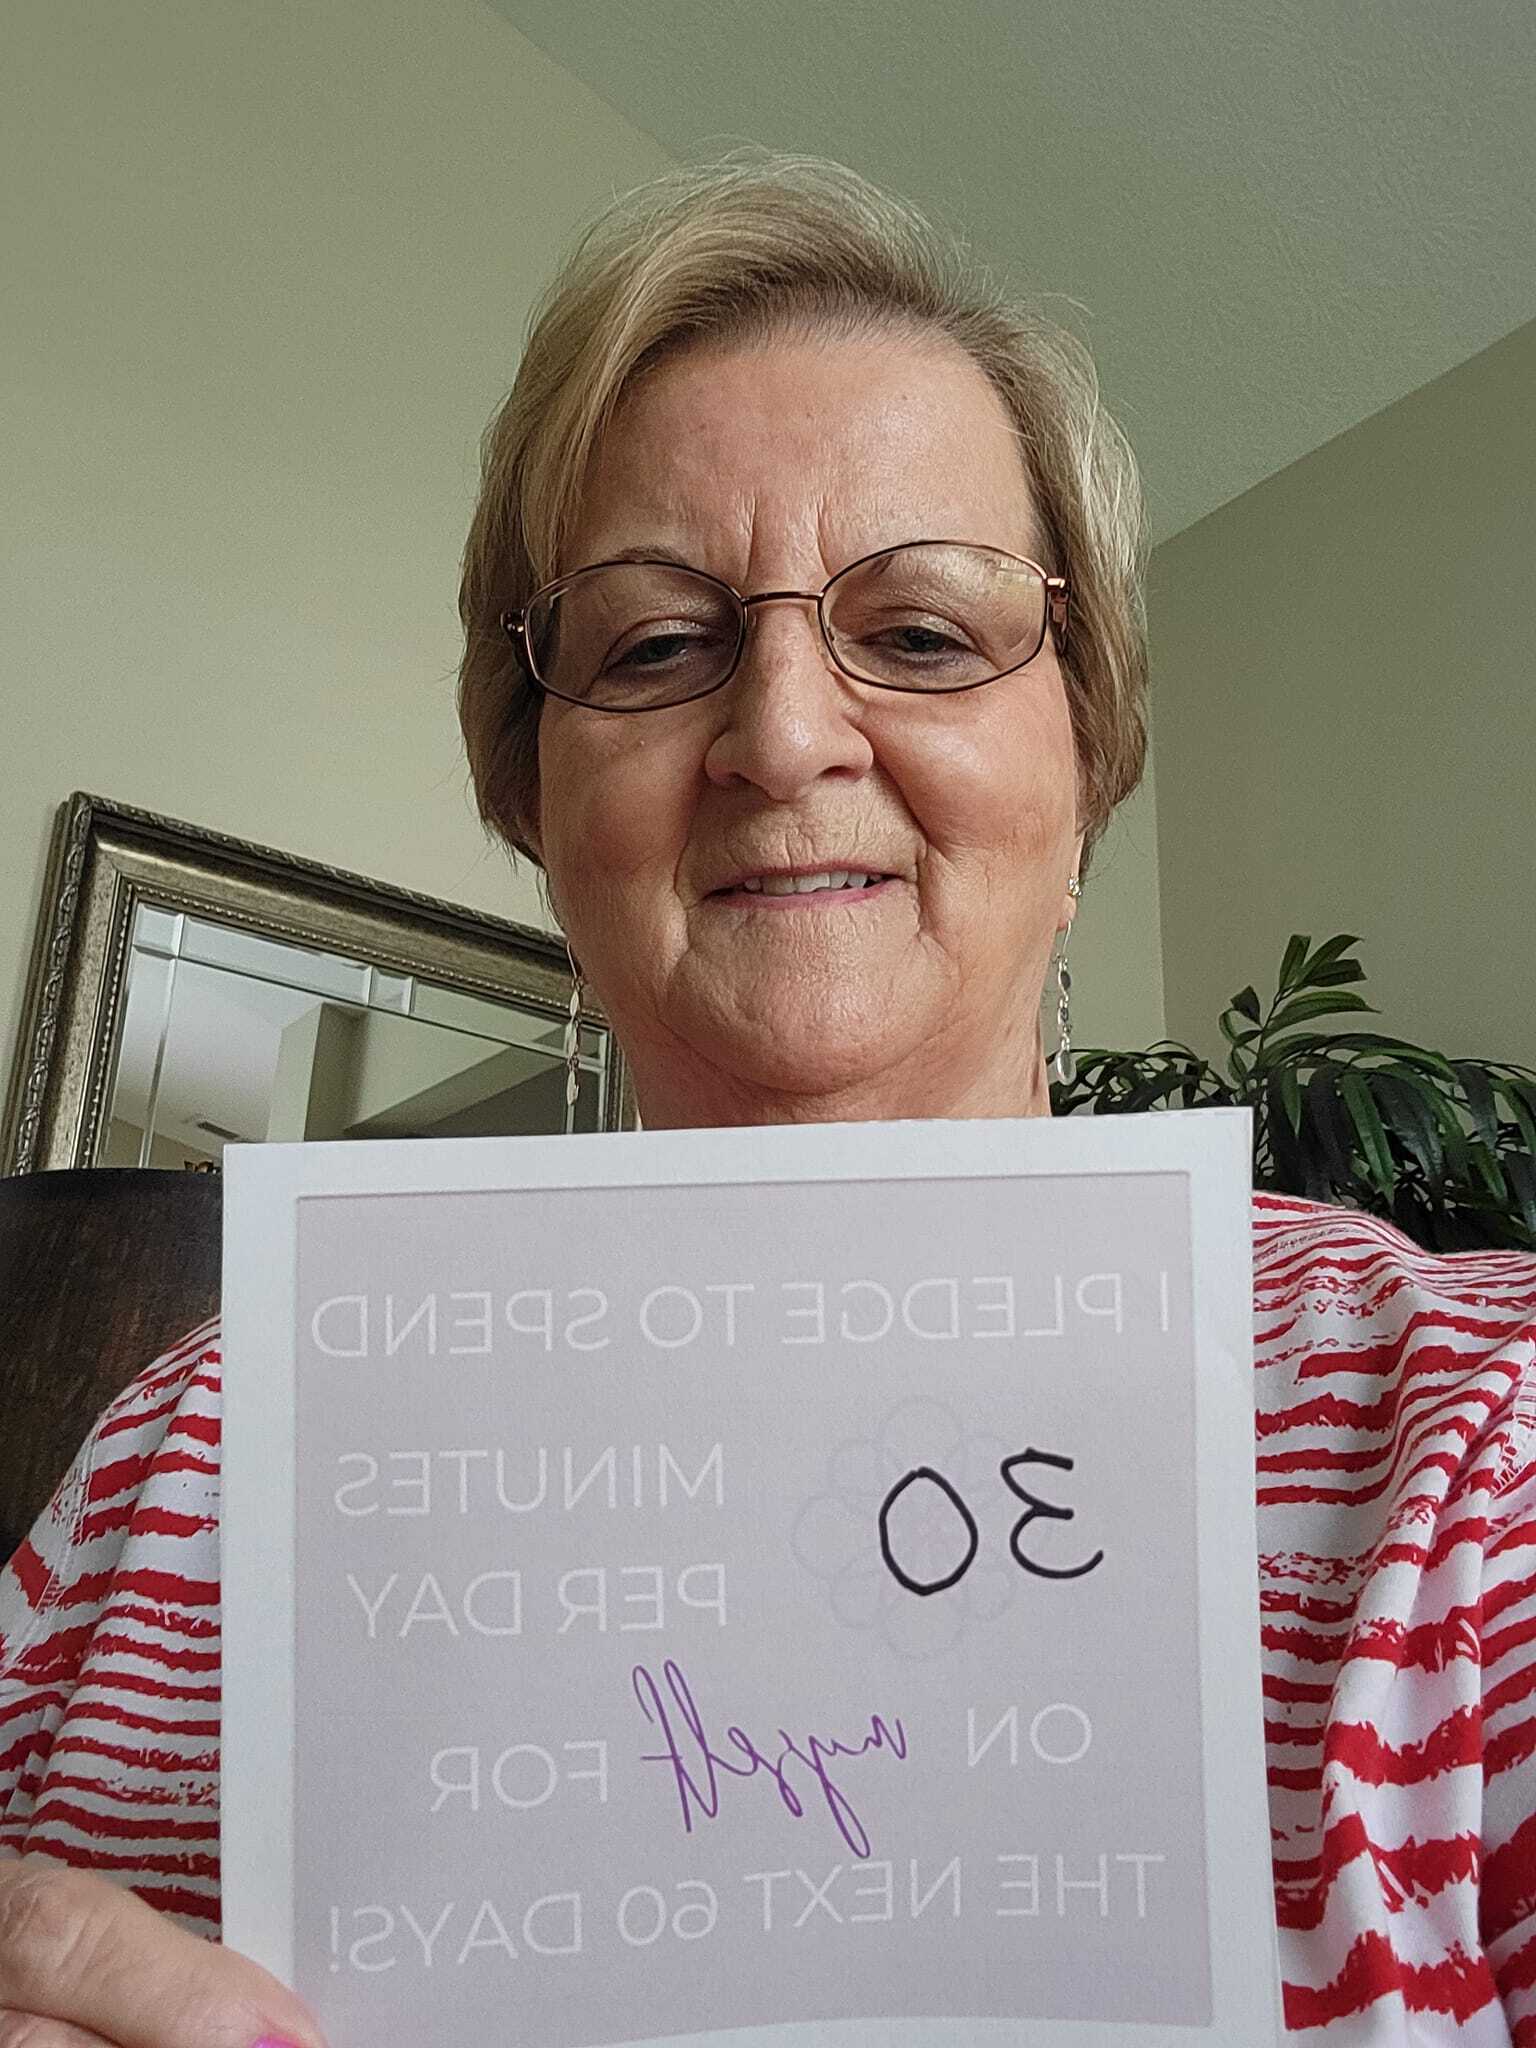 I PLEDGE TO SPEND
30 MINUTES
PER DAY
ON myself FOR
THE NEXT 60 DAYS!